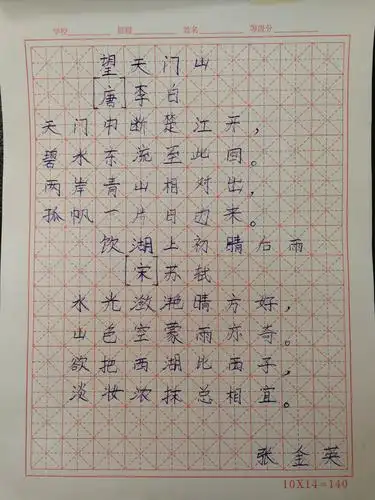 学校 班级 姓名 等级分
望天门山
[唐]李白
天门中断楚江开，
碧水东流至此回。
两岸青山相对出，
孤帆一片日边来。
饮湖上初晴后雨
[宋]苏轼
水光潋滟晴方好，
山色空蒙雨亦奇。
欲把西湖比西子，
淡妆浓抹总相宜。
张金英
10X14=140